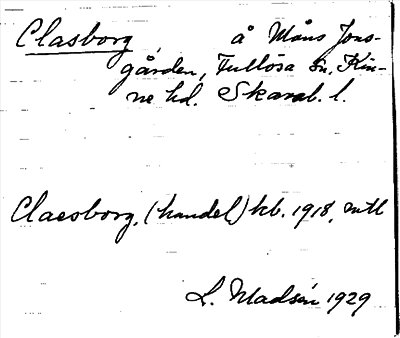 Clasborg, å Måns Jons-
gården, Fullösa sn, Kin-
ne hd. Skarab. l.
Claesborg, (handel) kb. 1918, mtl
L. Madsén 1929